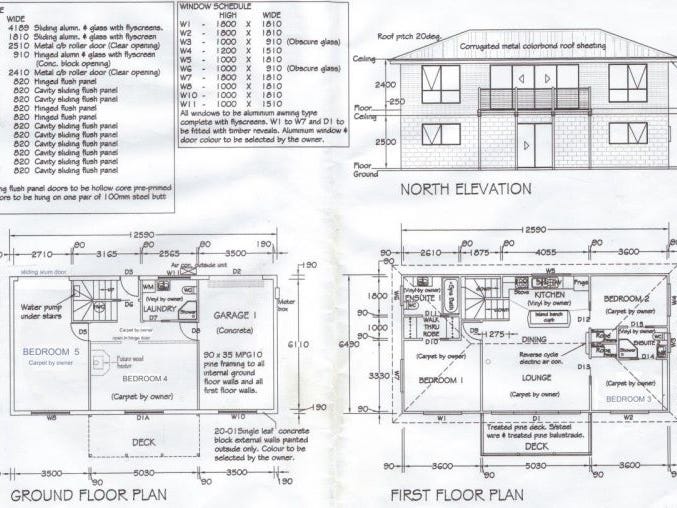 WIDE
4189 Sliding alumn. & glass with flyscreens.
1810 Sliding alumn. & glass with flyscreens
2510 Metal c/b roller door (Clear opening)
910 Hinged alumn. & glass with flyscreen
(Conc. block opening)
2410 Metal c/b roller door (Clear opening)
820 Hinged flush panel
820 Cavity sliding flush panel
820 Cavity sliding flush panel
820 Hinged flush panel
820 Hinged flush panel
820 Cavity sliding flush panel
820 Cavity sliding flush panel
820 Cavity sliding flush panel
820 Cavity sliding flush panel
flush panel doors to be hollow core pre-primed
ors to be hung on one pair of 100mm steel butt
WINDOW SCHEDULE
HIGH WIDE
W1 - 1800 X 1810
W2 - 1800 X 1810
W3 - 1000 X 910 (Obscure glass)
W4 - 1200 X 1510
W5 - 1000 X 1810
W6 - 1000 X 910 (Obscure glass)
W7 - 1800 X 1810
W8 - 1000 X 1810
W10 - 1000 X 1810
W11 - 1000 X 1510
All windows to be aluminum awning type
complete with flyscreens. W1 to W7 and D1 to
be fitted with timber reveals. Aluminum window &
door colour to be selected by the owner.
Roof pitch 20deg.
Corrugated metal colorbond roof sheeting
Ceiling
2400
Floor
250
Ceiling
2500
Floor
Ground
NORTH ELEVATION
12590
90 90 90 190
2710 3165 2565 3500
Air con. outside unit
sliding alum door
W11
D2
D3
WM
WC
D6
(Vinyl by owner)
LAUNDRY
D7
Shower
Water pump
under stairs
D5
D8
GARAGE 1
(Concrete)
Meter
box
190
6110
190
Carpet by owner
BEDROOM 5
Carpet by owner
BEDROOM 4
(Carpet by owner)
90 x 35 MPG10
pine framing to
all internal
ground floor
walls and all
first floor walls.
W8
D1A
W10
DECK
20-01Single leaf concrete
block external walls painted
outside only. Colour to be
selected by the owner.
90 90
3500 5030 3500
GROUND FLOOR PLAN
12590
90 90 90 90 90
2610 1875 4055 3600
W5
W6
WC
(Vinyl by owner)
ENSUITE
D11
WALK
THRU
ROBE
D10
D9
Stove
Frige
KITCHEN
(Vinyl by owner)
Island bench
D12
BEDROOM 2
(Carpet by owner)
D15
Robe
Robe
Shower
ENSUITE
D14
WC
W3
90
1800
90
1000
90
3330
90
6490
1275
DINING
(Carpet by owner)
Reverse cycle
electric air con.
D13
W7
BEDROOM 1
(Carpet by owner)
LOUNGE
(Carpet by owner)
(Carpet by owner)
BEDROOM 3
W1
D1
W2
Treated pine deck. S/steel
wire & treated pine balustrade.
DECK
90 90 90 90
3600 5030 3600
FIRST FLOOR PLAN